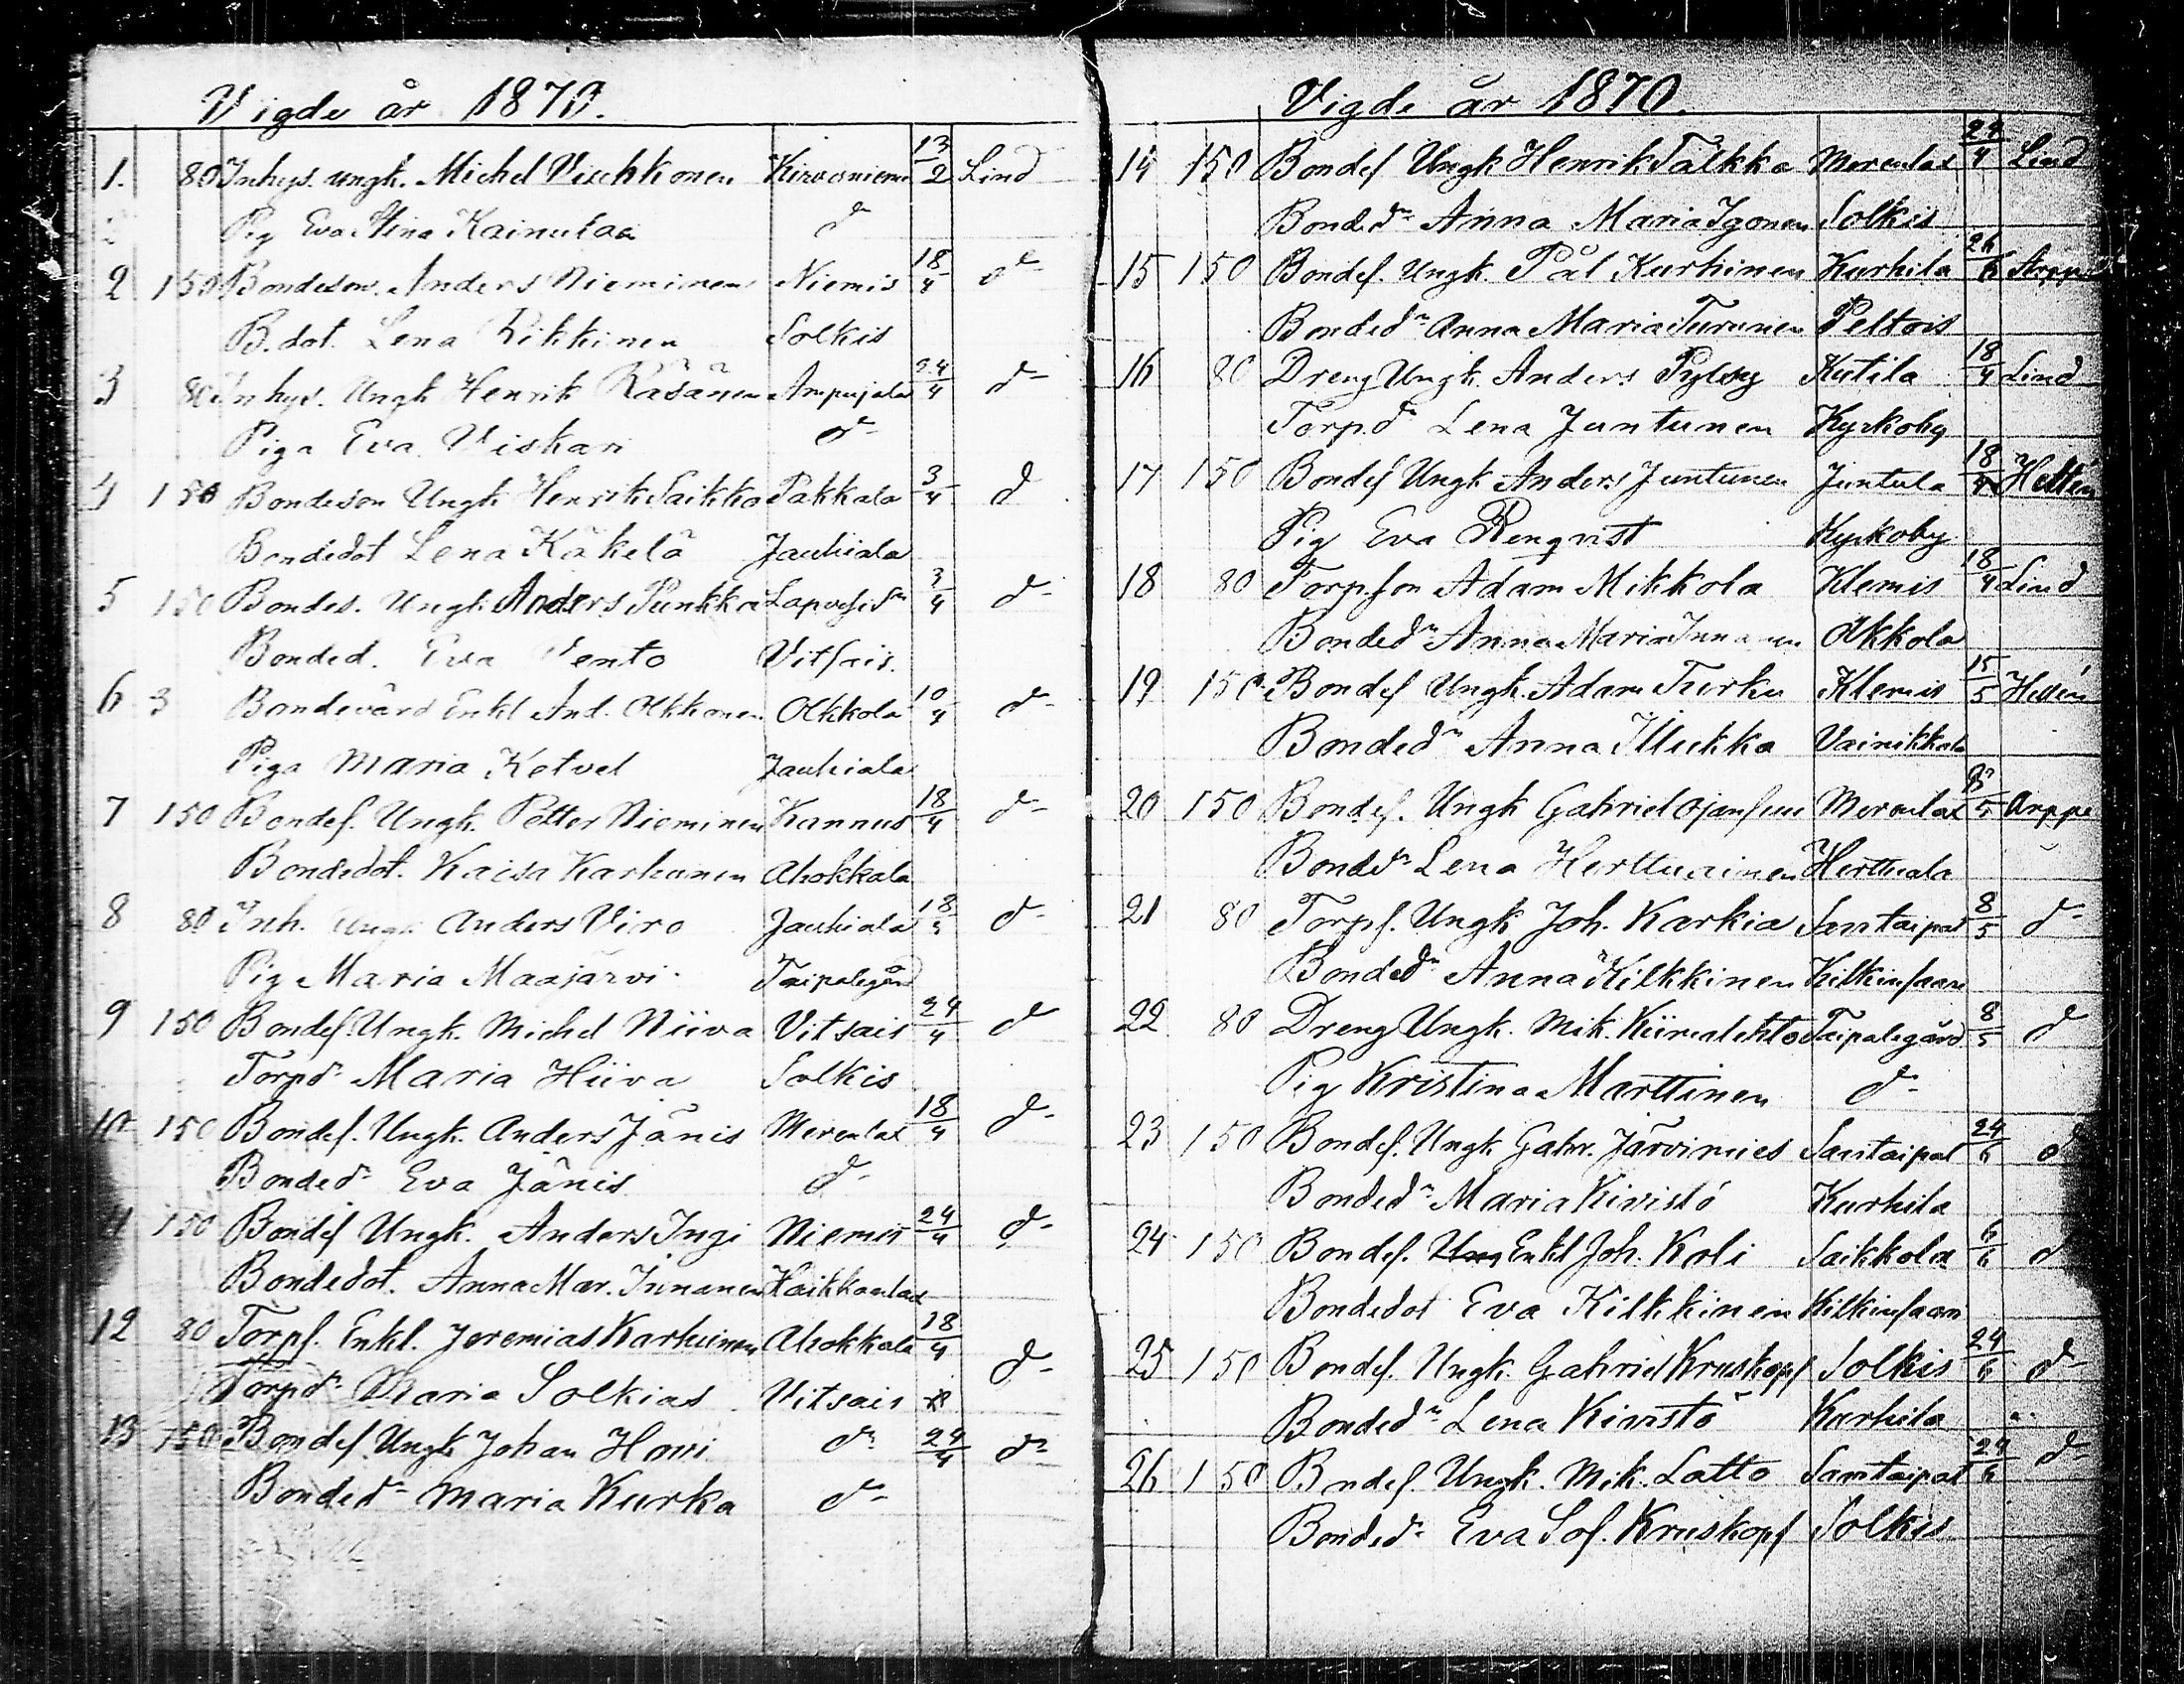 Vigde år 1870.
1. 80 Inhys. ungk. Michel Kirvesniemi 13/2 Lind
Pig Eva Stina Kainulaa d
2 150 Bondeson. Anders Nieminen Niemis 18/4 d
B. dot. Lena Rikkinen Solkis
3 80 Inhys. Ungk Henrik Räsänen Ampujala 24/4 d
Piga Eva Viskari d
4 150 Bondeson Ungk Henrik Saikko Pakkala 3/4 d
Bondedot Lena Käkelä Jauhiala
5 150 Bondes. Ungk Anders Punkka 3/4 d
Bonded. Eva Vento Vitsais.
6 3 Bondevärd Enkl And. Olkkonen Olkkola 10/4 d
Piga Maria Ketvel Jauhiala
7 150 Bondes. Ungk. Petter Nieminen Kannus 18/4 d
Bondedot. Kaisa Karhunen Ahokkala
8 80 Inh. Ungk Anders Viro Jauhiala 18/4 d
Pig Maria Maajärvi. Taipalegård
9 150 Bondes. Ungk. Michel Niiva Vitsais 24/4 d
Torpdr Maria Hiiva Solkis
10 150 Bondes. Ungk. Anders Jänis Merenlax 18/4 d
Bondedr Eva Jänis d
11 150 Bondes Ungk. Anders Ingi Niemis 24/4 d
Bondedot. Anna Mar. Innanen
12 80 Torps. Enkl. Jeremias Karhunen Ahokkala 18/4 d
Torpdr Maria Solkias Vitsais
13 150 Bondes Ungk Johan Hovi d 24/4 d
Bondedr Maria Kurka d
Vigde år 1870.
14 150 Bondes Ungk Henrik Tälkkä Merenlax 24/4 Lind
Bondedr Anna Maria Igonen Solkis
15 150 Bondes. Ungk. Pål Kurhinen Kurhila 26/6 Arppe
Bondedr Anna Maria Turunen Peltois
16 80 Dreng Ungk. Anders Pylsy Kutila 18/4 Lind
Torpdr Lena Juntunen Kyrkoby
17 150 Bondes Ungk Anders Juntunen Juntula 18/4 Hellén
Pig Eva Renqvist Kyrkoby
18 80 Torpson Adam Mikkola Klemis 18/4 Lind
Bondedr Anna Maria Innanen Olkkola
19 150 Bondes Ungk. Adam Turku Klemis 15/5 Hellén
Bondedr Anna Illukka Vainikkala
20 150 Bondes. Ungk Gabriel Ojansuu Merenlax 8/5 Arppe
Bondedr Lena Herttuainen Herttuala
21 80 Torps. Ungk Joh. Karkia Santaipal 8/5 d
Bondedr Anna Kilkkinen Kilkinsaari
22 80 Dreng Ungk. Mik. Kiimalehto Taipalegård 8/5 d
Pig Kristina Marttinen d
23 150 Bondes. Ungk Gabr. Järvimies Santaipal 24/6 d
Bondedr Maria Kivistö Kurhila
24 150 Bondes. Ung Enkl Joh. Koli Saikkola 6/6 d
Bondedot Eva Kilkkinen Kilkinsaari
25 150 Bondes. Ungk. Gabriel Kruskopf Solkis 24/6 d
Bondedr Lena Kivistö Kurhila
26 150 Bndes. Ungk. Mik. Latto Santaipal 24/6 d
Bondedr Eva Sof. Kruskopf Solkis